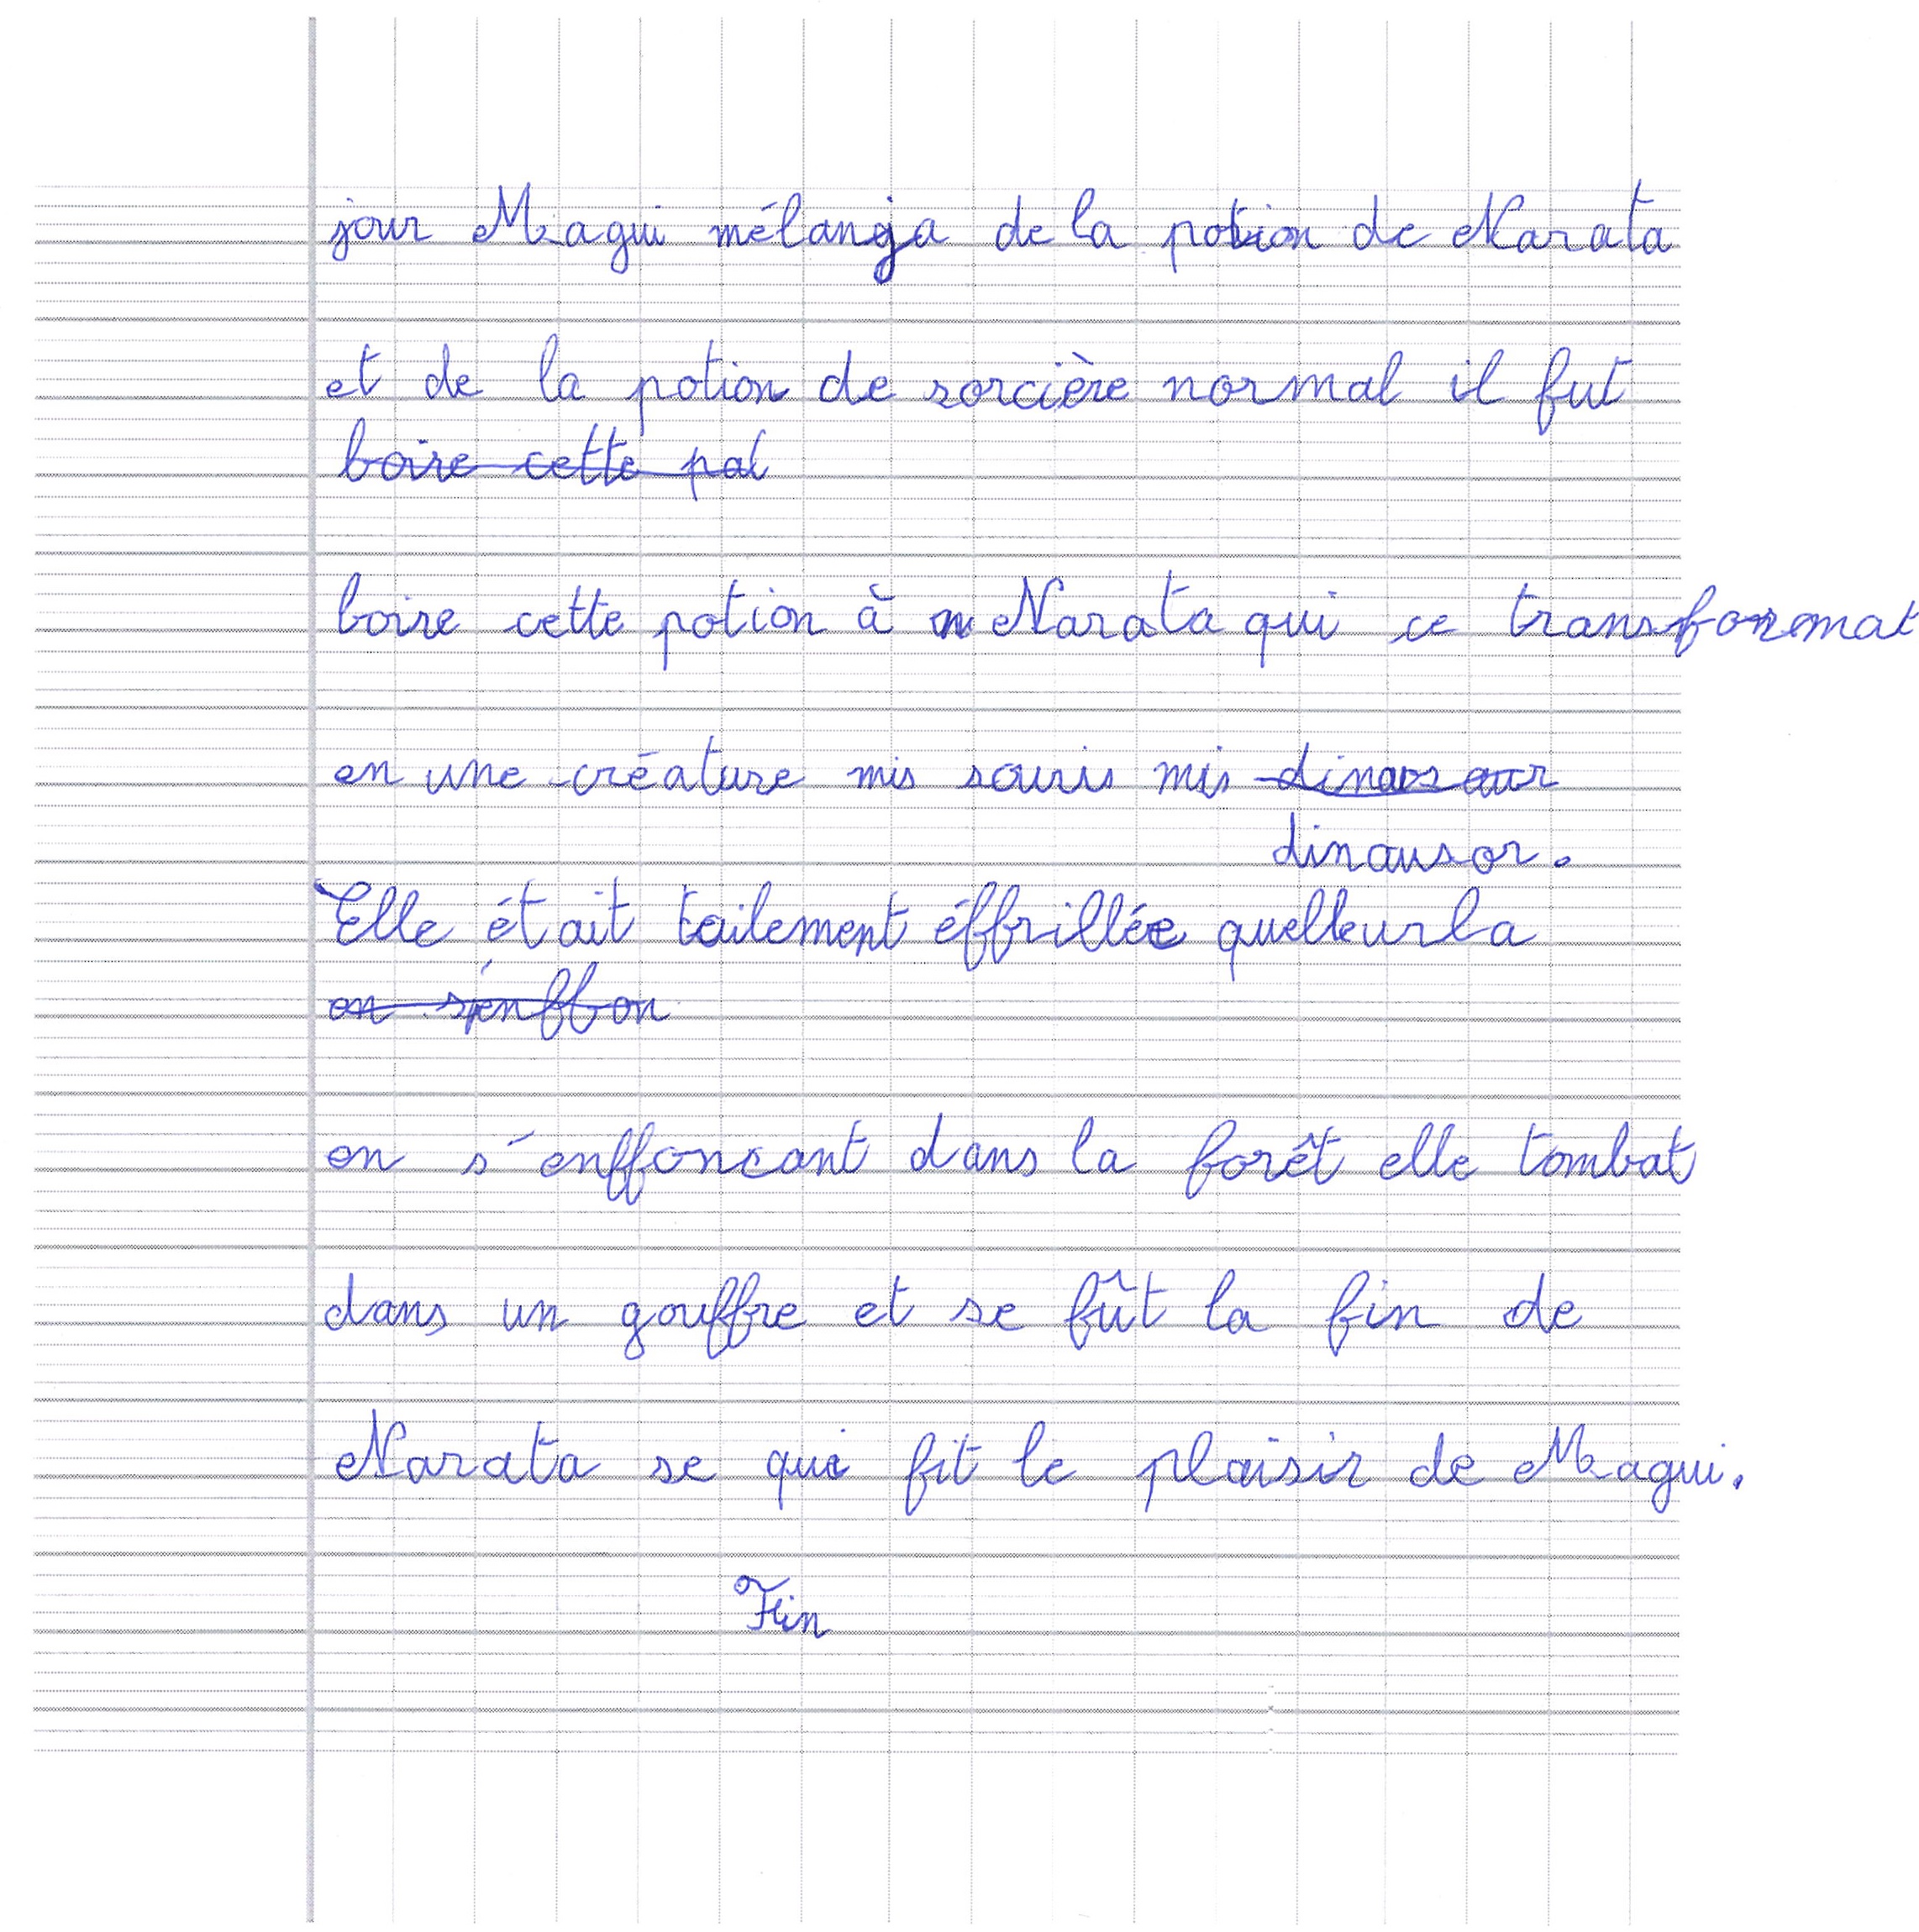 jour Magui mélanga de la potion de Narata
et de la potion de sorcière normal il fut
boire cette pot
boire cette potion à Narata qui ce transformat
en une créature mis souris mis dinausaur
dinausor.
Elle était tailement éffrillée quelleurla
en s'enffon
en s'enffoncant dans la forêt elle tombat
dans un gouffre et se fût la fin de
Narata se qui fit le plaisir de Magui.
Fin